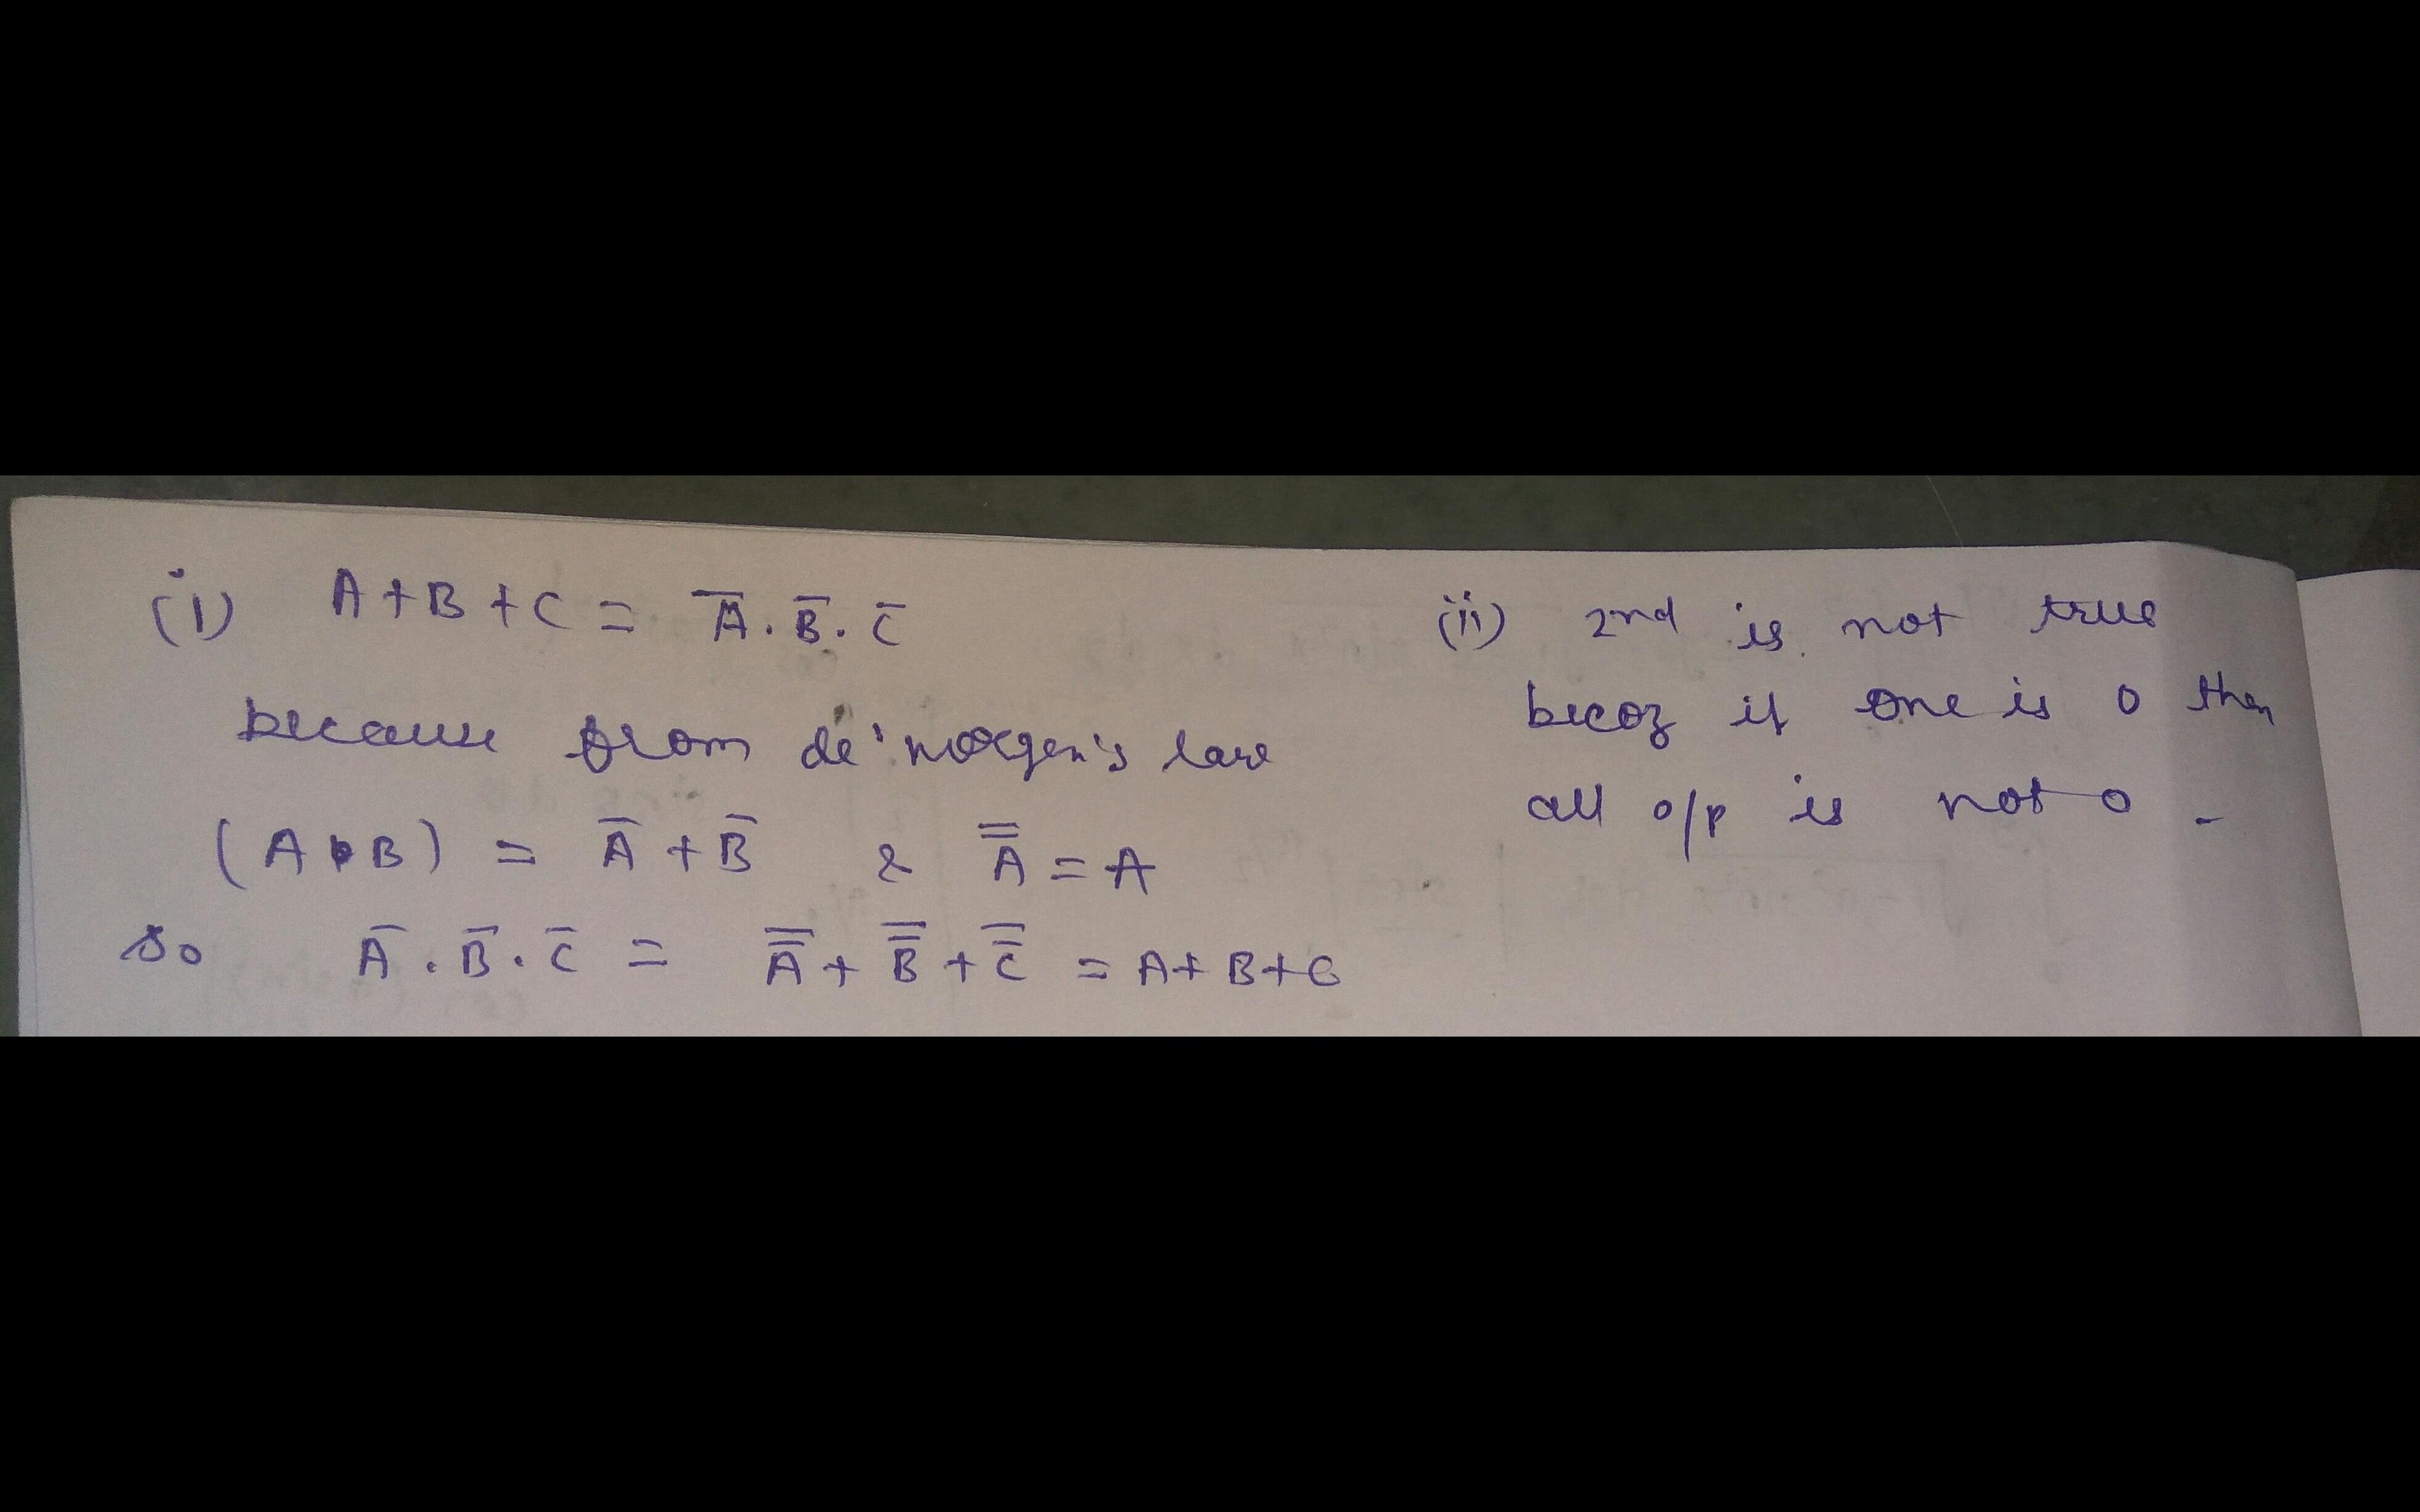 (i) A+B+C = A̅.B̅.C̅
because from de'morgen's law
(A.B) = A̅+B̅ & A̿=A
so A̅.B̅.C̅ = A̿+B̿+C̿ = A+B+C
(ii) 2nd is not true
becoz if one is 0 then
all o/p is not 0 -